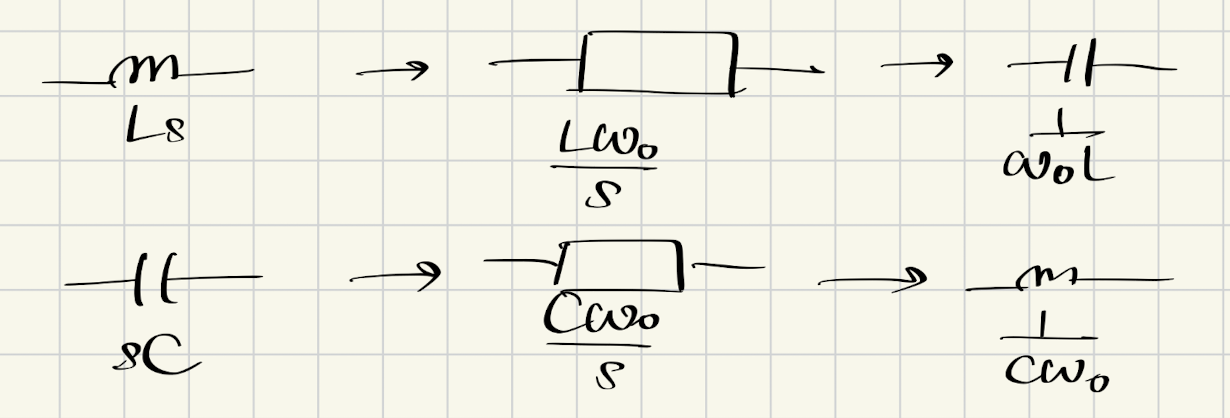 Ls → Lω₀/s → 1/ω₀L
sC → Cω₀/s → 1/Cω₀